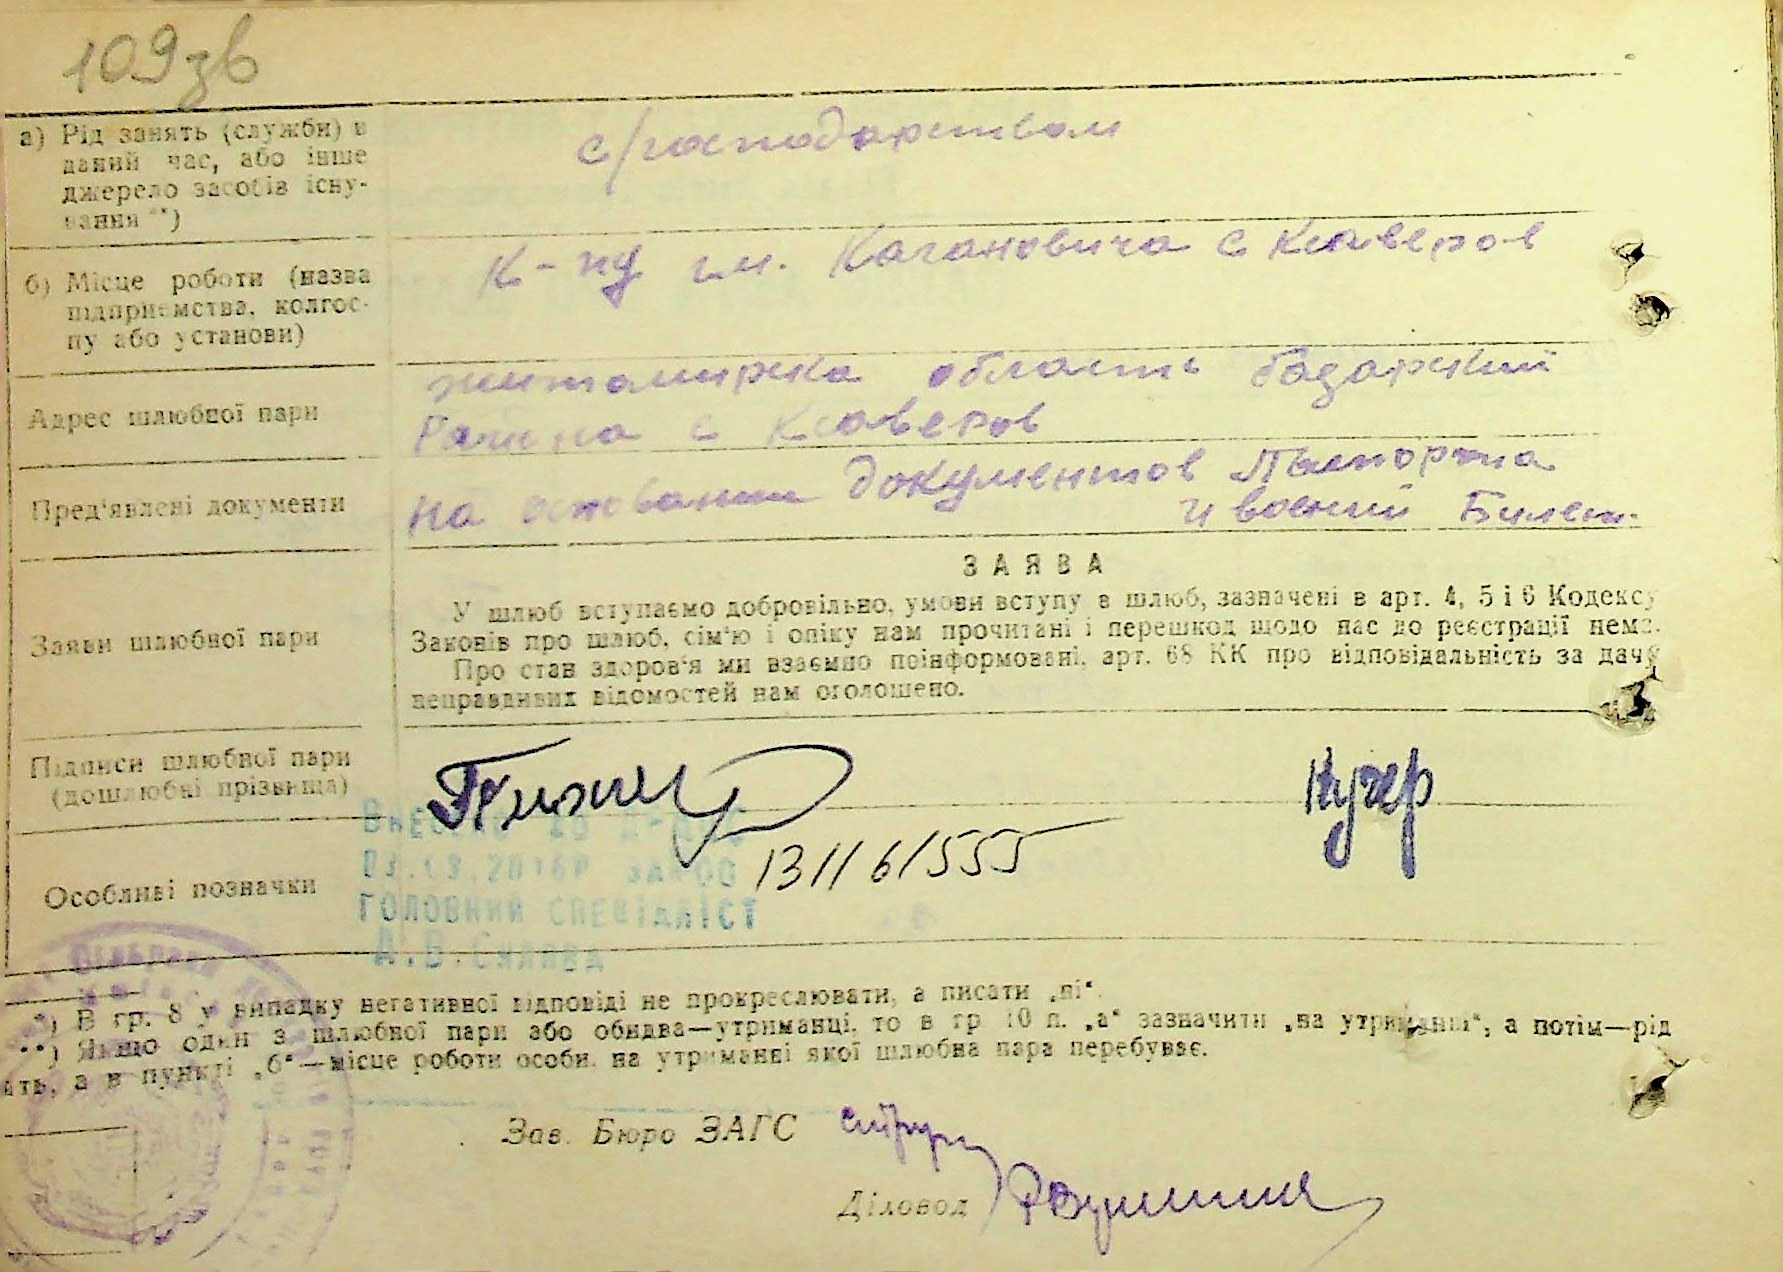 109зв
а) Рід занять (служби) в
даний час, або інше
джерело засобів існу-
вання **)
с/господарством
б) Місце роботи (назва
підприємства, колгос-
пу або установи)
К-пу им. Кагановича с Ксаверов
Адрес шлюбної пари
житомирска область базарский
Района с Ксаверов
Пред'явлені документи
на основании документов Паспорта
и военний Билет.
Заяви шлюбної пари
ЗАЯВА
У шлюб вступаємо добровільно, умови вступу в шлюб, зазначені в арт. 4, 5 і 6 Кодексу
Законів про шлюб, сім'ю і опіку нам прочитані і перешкод щодо нас до реєстрації нема.
Про стан здоров'я ми взаємно поінформовані, арт. 68 КК про відповідальність за дачу
неправдивих відомостей нам оголошено.
Підписи шлюбної пари
(дошлюбні прізвища)
Кучер
Особливі позначки
ГОЛОВНИЙ СПЕЦІАЛІСТ
*) В гр. 8 у випадку негативної відповіді не прокреслювати, а писати „ні“.
**) Якщо один з шлюбної пари або обидва—утриманці, то в гр 10 п. „а“ зазначити „на утриманні“, а потім—рід
ать, а в пункті „б“—місце роботи особи, на утриманні якої шлюбна пара перебуває.
Зав. Бюро ЗАГС
Діловод